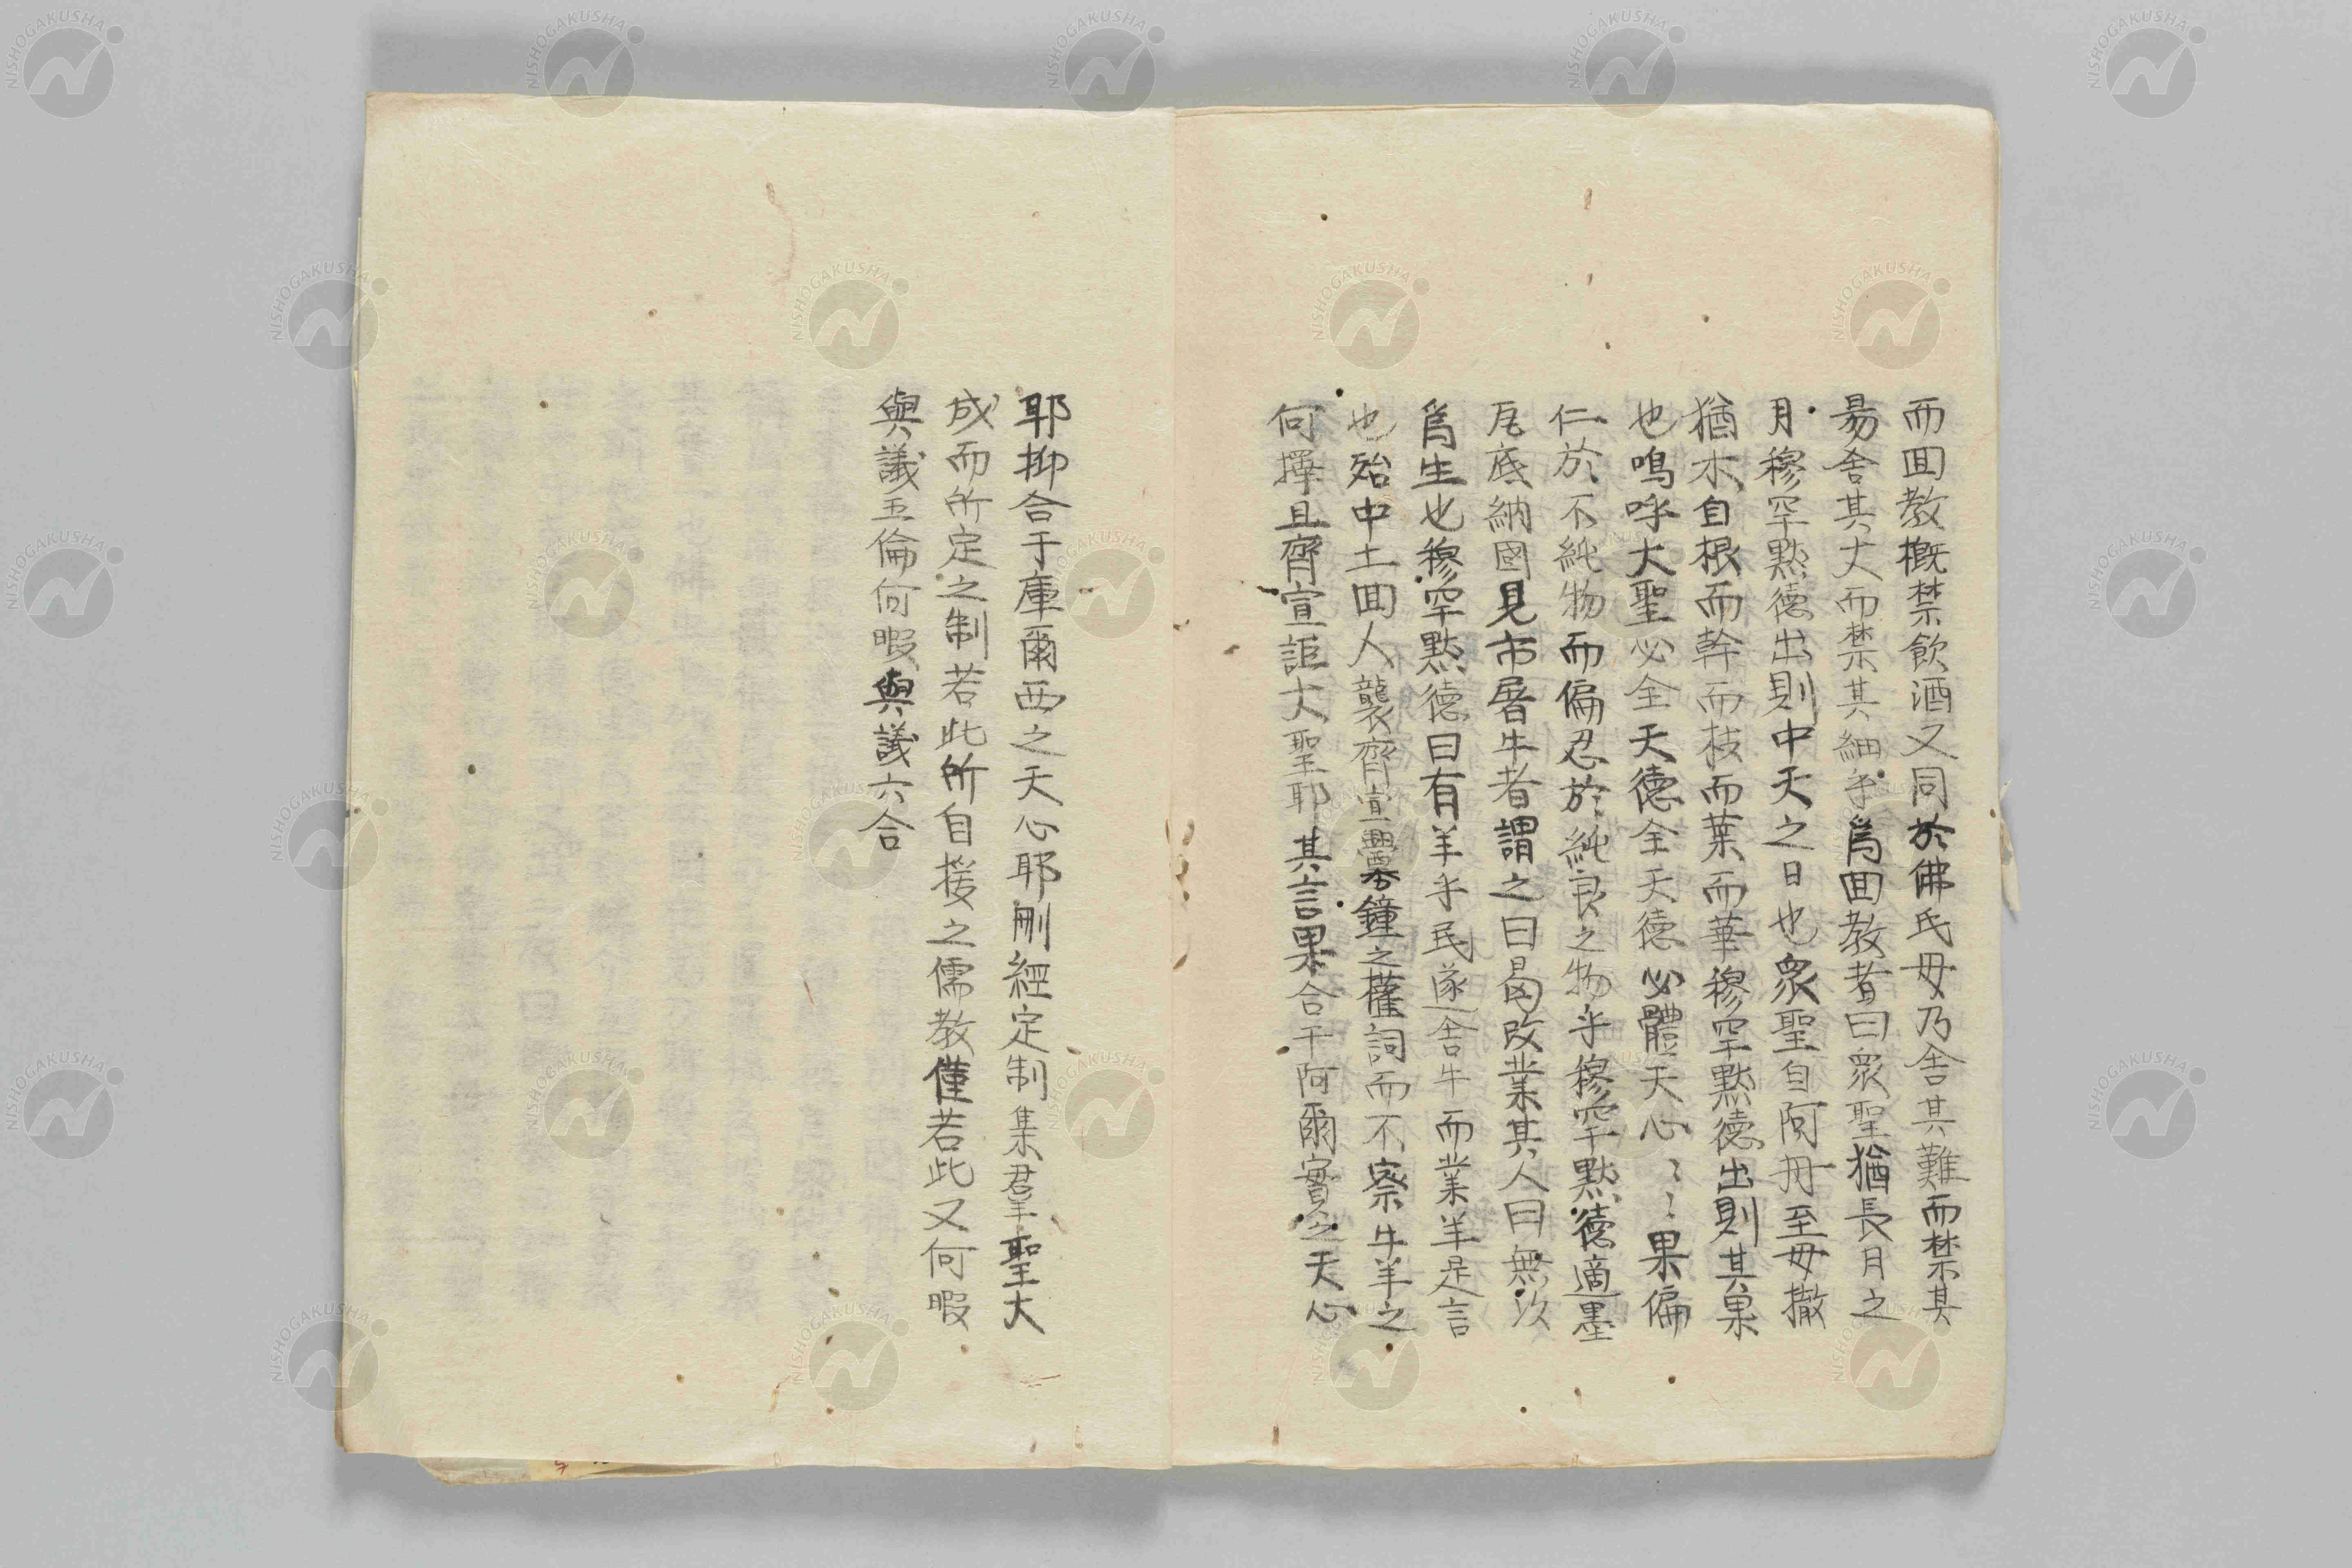 而囬教概禁飲酒又同於佛氏毋乃舍其難而禁其
昜舍其丈而禁其細乎爲囬教者曰衆聖猶長月之
月穆罕黙德出則中天之日也衆聖自阿冊至毋撒
猶木自根而幹而枝而葉而華穆罕黙德出則其菓
也鳴呼大聖必全天德全天德必體天心〻〻果偏
仁於不純物而偏忍於純良之物乎穆罕黙德適墨
底納國見市屠牛者謂之曰曷改業其人曰無以
爲生也穆罕黙德曰有羊乎民遂舍牛而業羊是言
也殆中土囬人襲齊宣釁鐘之權詞而不察牛羊之
何擇且齊宣詎大聖耶其言果合于阿爾實之天心
耶抑合于庫爾西之天心耶刪經定制集羣聖大
成而所定之制若此所自援之儒教僅若此又何暇
與議五倫何暇與議六合
NISHOGAKUSHA